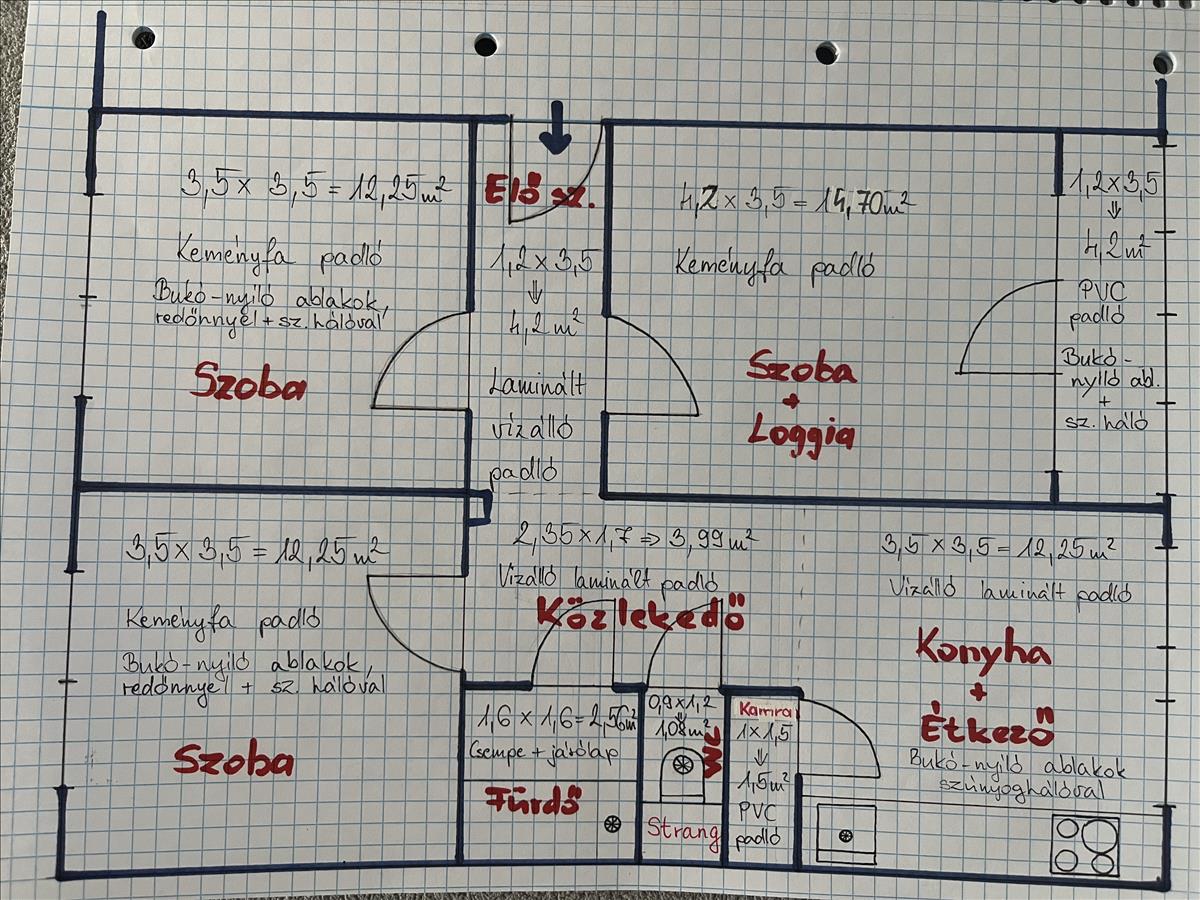 3,5 x 3,5 = 12,25 m²
Keményfa padló
Bukó-nyíló ablakok,
redőnnyel + sz. hálóval
Szoba
Elő sz.
1,2 x 3,5
⇓
4,2 m²
Laminált
vízálló
padló
4,2 x 3,5 = 14,70 m²
Keményfa padló
Szoba
+
Loggia
1,2 x 3,5
⇓
4,2 m²
PVC
padló
Bukó-
nyíló abl.
+
sz. háló
3,5 x 3,5 = 12,25 m²
Keményfa padló
Bukó-nyíló ablakok,
redőnnyel + sz. hálóval
Szoba
2,35 x 1,7 ⇒ 3,99 m²
Vízálló laminált padló
Közlekedő
3,5 x 3,5 = 12,25 m²
Vízálló laminált padló
Konyha
+
Étkező
Bukó-nyíló ablakok
szúnyoghálóval
1,6 x 1,6 = 2,56 m²
Csempe + járólap
Fürdő
0,9 x 1,2
⇓
1,08 m²
WC
Strang
Kamra
1 x 1,5
⇓
1,5 m²
PVC
padló